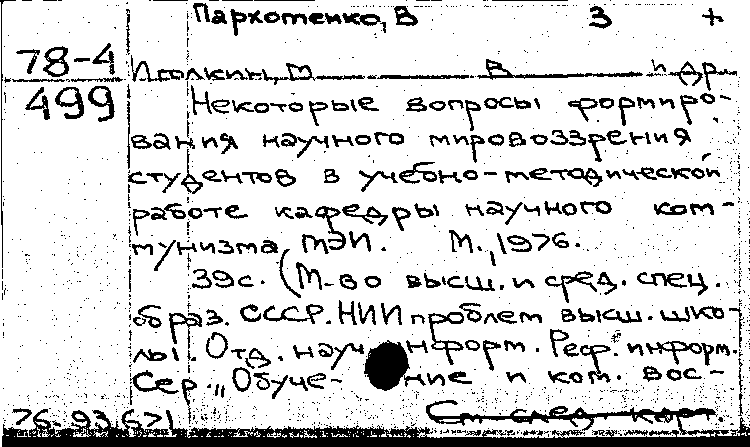 Пархоменко, В З +
78-4 Иголкин, М В и др.
499 Некоторые вопросы формиро-
вания научного мировоззрения
студентов в учебно-методической
работе кафедры научного ком-
мунизма МЭИ. М., 1976.
39с. (М-во высш. и сред. спец.
образ. СССР. НИИ проблем высш. шко-
лы. Отд. науч информ. Реф. информ.
Сер. „Обуче- ние и ком. вос-
76-93671 См след. карт.